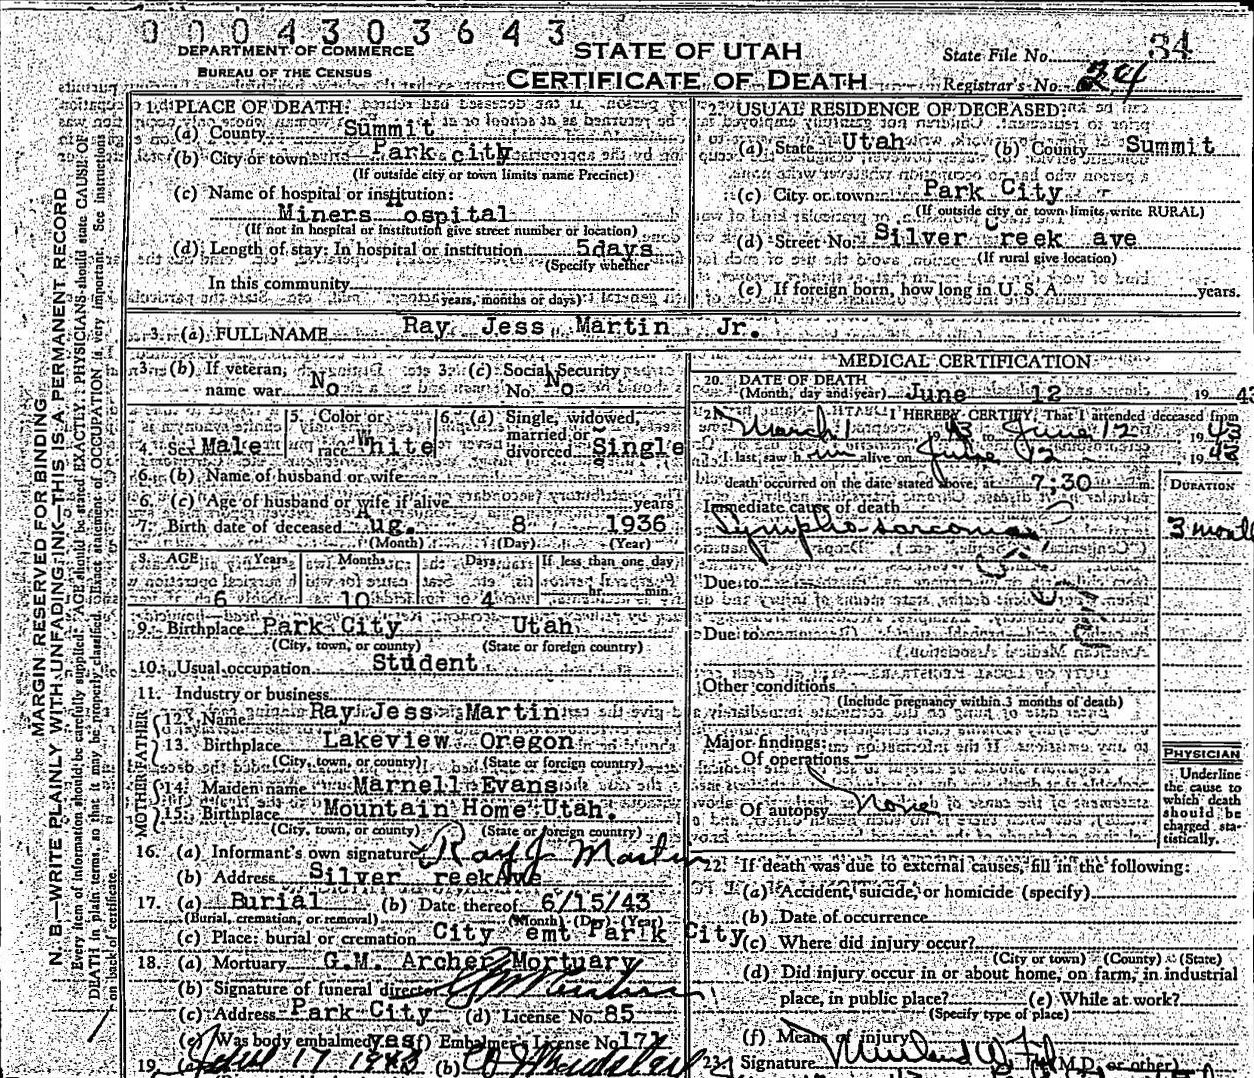 0 0 0 4 3 0 3 6 4 3
DEPARTMENT OF COMMERCE
BUREAU OF THE CENSUS
STATE OF UTAH
CERTIFICATE OF DEATH
State File No. 34
Registrar's No. 24
MARGIN RESERVED FOR BINDING
N. B—WRITE PLAINLY WITH UNFADING INK—THIS IS A PERMANENT RECORD
Every item of information should be carefully supplied. AGE should be stated EXACTLY. PHYSICIANS should state CAUSE OF
DEATH in plain terms, so that it may be properly classified. Exact statement of OCCUPATION is very important. See instructions
on back of certificate.
1. PLACE OF DEATH:
(a) County Summit
(b) City or town Park city
(If outside city or town limits name Precinct)
(c) Name of hospital or institution:
Miners Hospital
(If not in hospital or institution give street number or location)
(d) Length of stay: In hospital or institution 5days
(Specify whether
In this community
years, months or days)
2. USUAL RESIDENCE OF DECEASED:
(a) State Utah (b) County Summit
(c) City or town Park City
(If outside city or town limits write RURAL)
(d) Street No. Silver Creek ave
(If rural give location)
(e) If foreign born, how long in U. S. A. years.
3. (a) FULL NAME Ray Jess Martin Jr.
3. (b) If veteran, name war No
3. (c) Social Security No. No
4. Sex Male
5. Color or race White
6. (a) Single, widowed, married or divorced Single
6. (b) Name of husband or wife
6. (c) Age of husband or wife if alive years
7. Birth date of deceased Aug. 8 1936
(Month) (Day) (Year)
8. AGE Years Months Days If less than one day
6 10 4 hr. min.
9. Birthplace Park City Utah
(City, town, or county) (State or foreign country)
10. Usual occupation Student
11. Industry or business
FATHER
12. Name Ray Jess Martin
13. Birthplace Lakeview Oregon
(City, town, or county) (State or foreign country)
MOTHER
14. Maiden name Marnell Evans
15. Birthplace Mountain Home Utah.
(City, town, or county) (State or foreign country)
16. (a) Informant's own signature Ray J Martin
(b) Address Silver reek Ave
17. (a) Burial (b) Date thereof 6/15/43
(Burial, cremation, or removal) (Month) (Day) (Year)
(c) Place: burial or cremation City emt Park City
18. (a) Mortuary G.M. Archer Mortuary
(b) Signature of funeral director
(c) Address Park City (d) License No. 85
(e) Was body embalmed yes (f) Embalmer's License No 171
19. (a) 17 1943 (b)
MEDICAL CERTIFICATION
20. DATE OF DEATH
(Month, day and year) June 12 19 43
21. I HEREBY CERTIFY, That I attended deceased from
March 1 43 to June 12 19 43
I last saw him alive on June 12 19 43
death occurred on the date stated above, at 7;30 m.
DURATION
Immediate cause of death
Lympho-sarcoma 3 months
Due to
Due to
Other conditions
(Include pregnancy within 3 months of death)
Major findings:
Of operations
Of autopsy None
PHYSICIAN
Underline the cause to which death should be charged statistically.
22. If death was due to external causes, fill in the following:
(a) Accident, suicide, or homicide (specify)
(b) Date of occurrence
(c) Where did injury occur?
(City or town) (County) (State)
(d) Did injury occur in or about home, on farm, in industrial
place, in public place? (e) While at work?
(Specify type of place)
(f) Means of injury
23. Signature (M.D. or other)